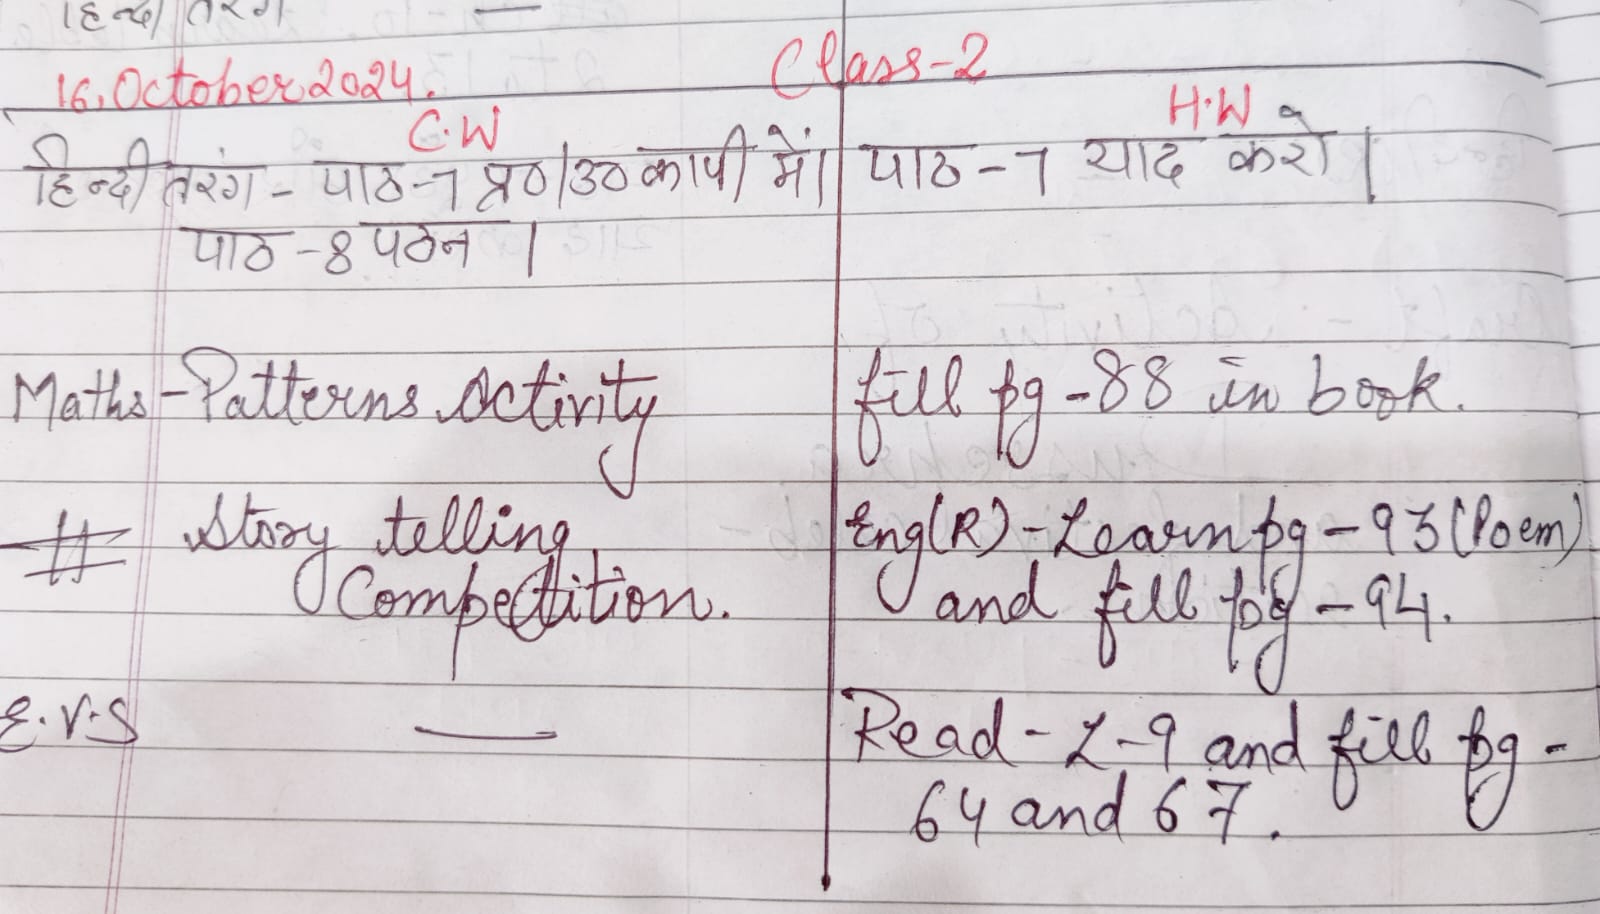 हिन्दी तरंग —
16, October 2024. Class-2
C.W H.W
हिन्दी तरंग - पाठ-7 प्र०/उ० कापी में। पाठ-7 याद करो।
पाठ-8 पठन।
Maths - Patterns Activity fill pg-88 in book.
# Story telling Eng(R) - Learn pg-93 (Poem)
Competition. and fill pg-94.
E.V.S — Read - L-9 and fill pg-
64 and 67.